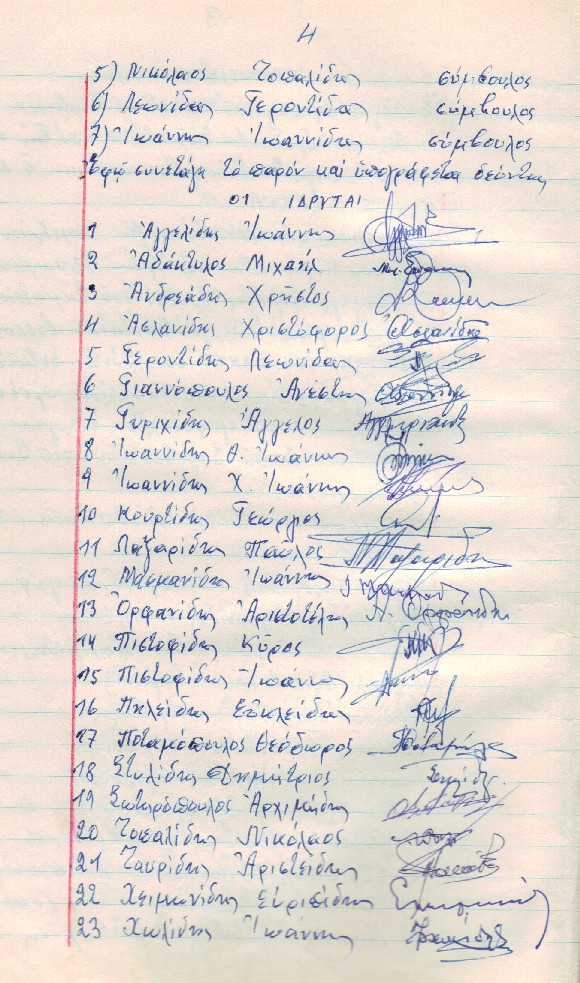 4
5) Νικόλαος Τοπαλίδης σύμβουλος
6) Λεωνίδας Γεροντίδης σύμβουλος
7) Ἰωάννης Ἰωαννίδης σύμβουλος
Ἐφῷ συνετάγη τό παρόν καί ὑπογράφεται δεόντως
ΟΙ ΙΔΡΥΤΑΙ
1 Ἀγγελίδης Ἰωάννης
2 Ἀδάκτυλος Μιχαήλ
3 Ἀνδρεάδης Χρῆστος
4 Ἀσλανίδης Χριστόφορος Ἀσλανίδης
5 Γεροντίδης Λεωνίδας
6 Γιαννόπουλος Ἀνέστης
7 Γυριχίδης Ἄγγελος
8 Ἰωαννίδης Θ. Ἰωάννης
9 Ἰωαννίδης Χ. Ἰωάννης
10 Κουρτίδης Γεώργιος
11 Λαζαρίδης Παῦλος
12 Μασμανίδης Ἰωάννης
13 Ὀρφανίδης Ἀριστοτέλης Α. Ορφανίδης
14 Πιστοφίδης Κῦρος
15 Πιστοφίδης Ἰωάννης
16 Πηλείδης Εὐκλείδης
17 Ποταμόπουλος Θεόδωρος
18 Στυλίδης Δημήτριος
19 Σωτηρόπουλος Ἀρχιμήδης
20 Τοπαλίδης Νικόλαος
21 Ταυρίδης Ἀριστείδης
22 Χειμωνίδης Εὐριπίδης
23 Χωλίδης Ἰωάννης